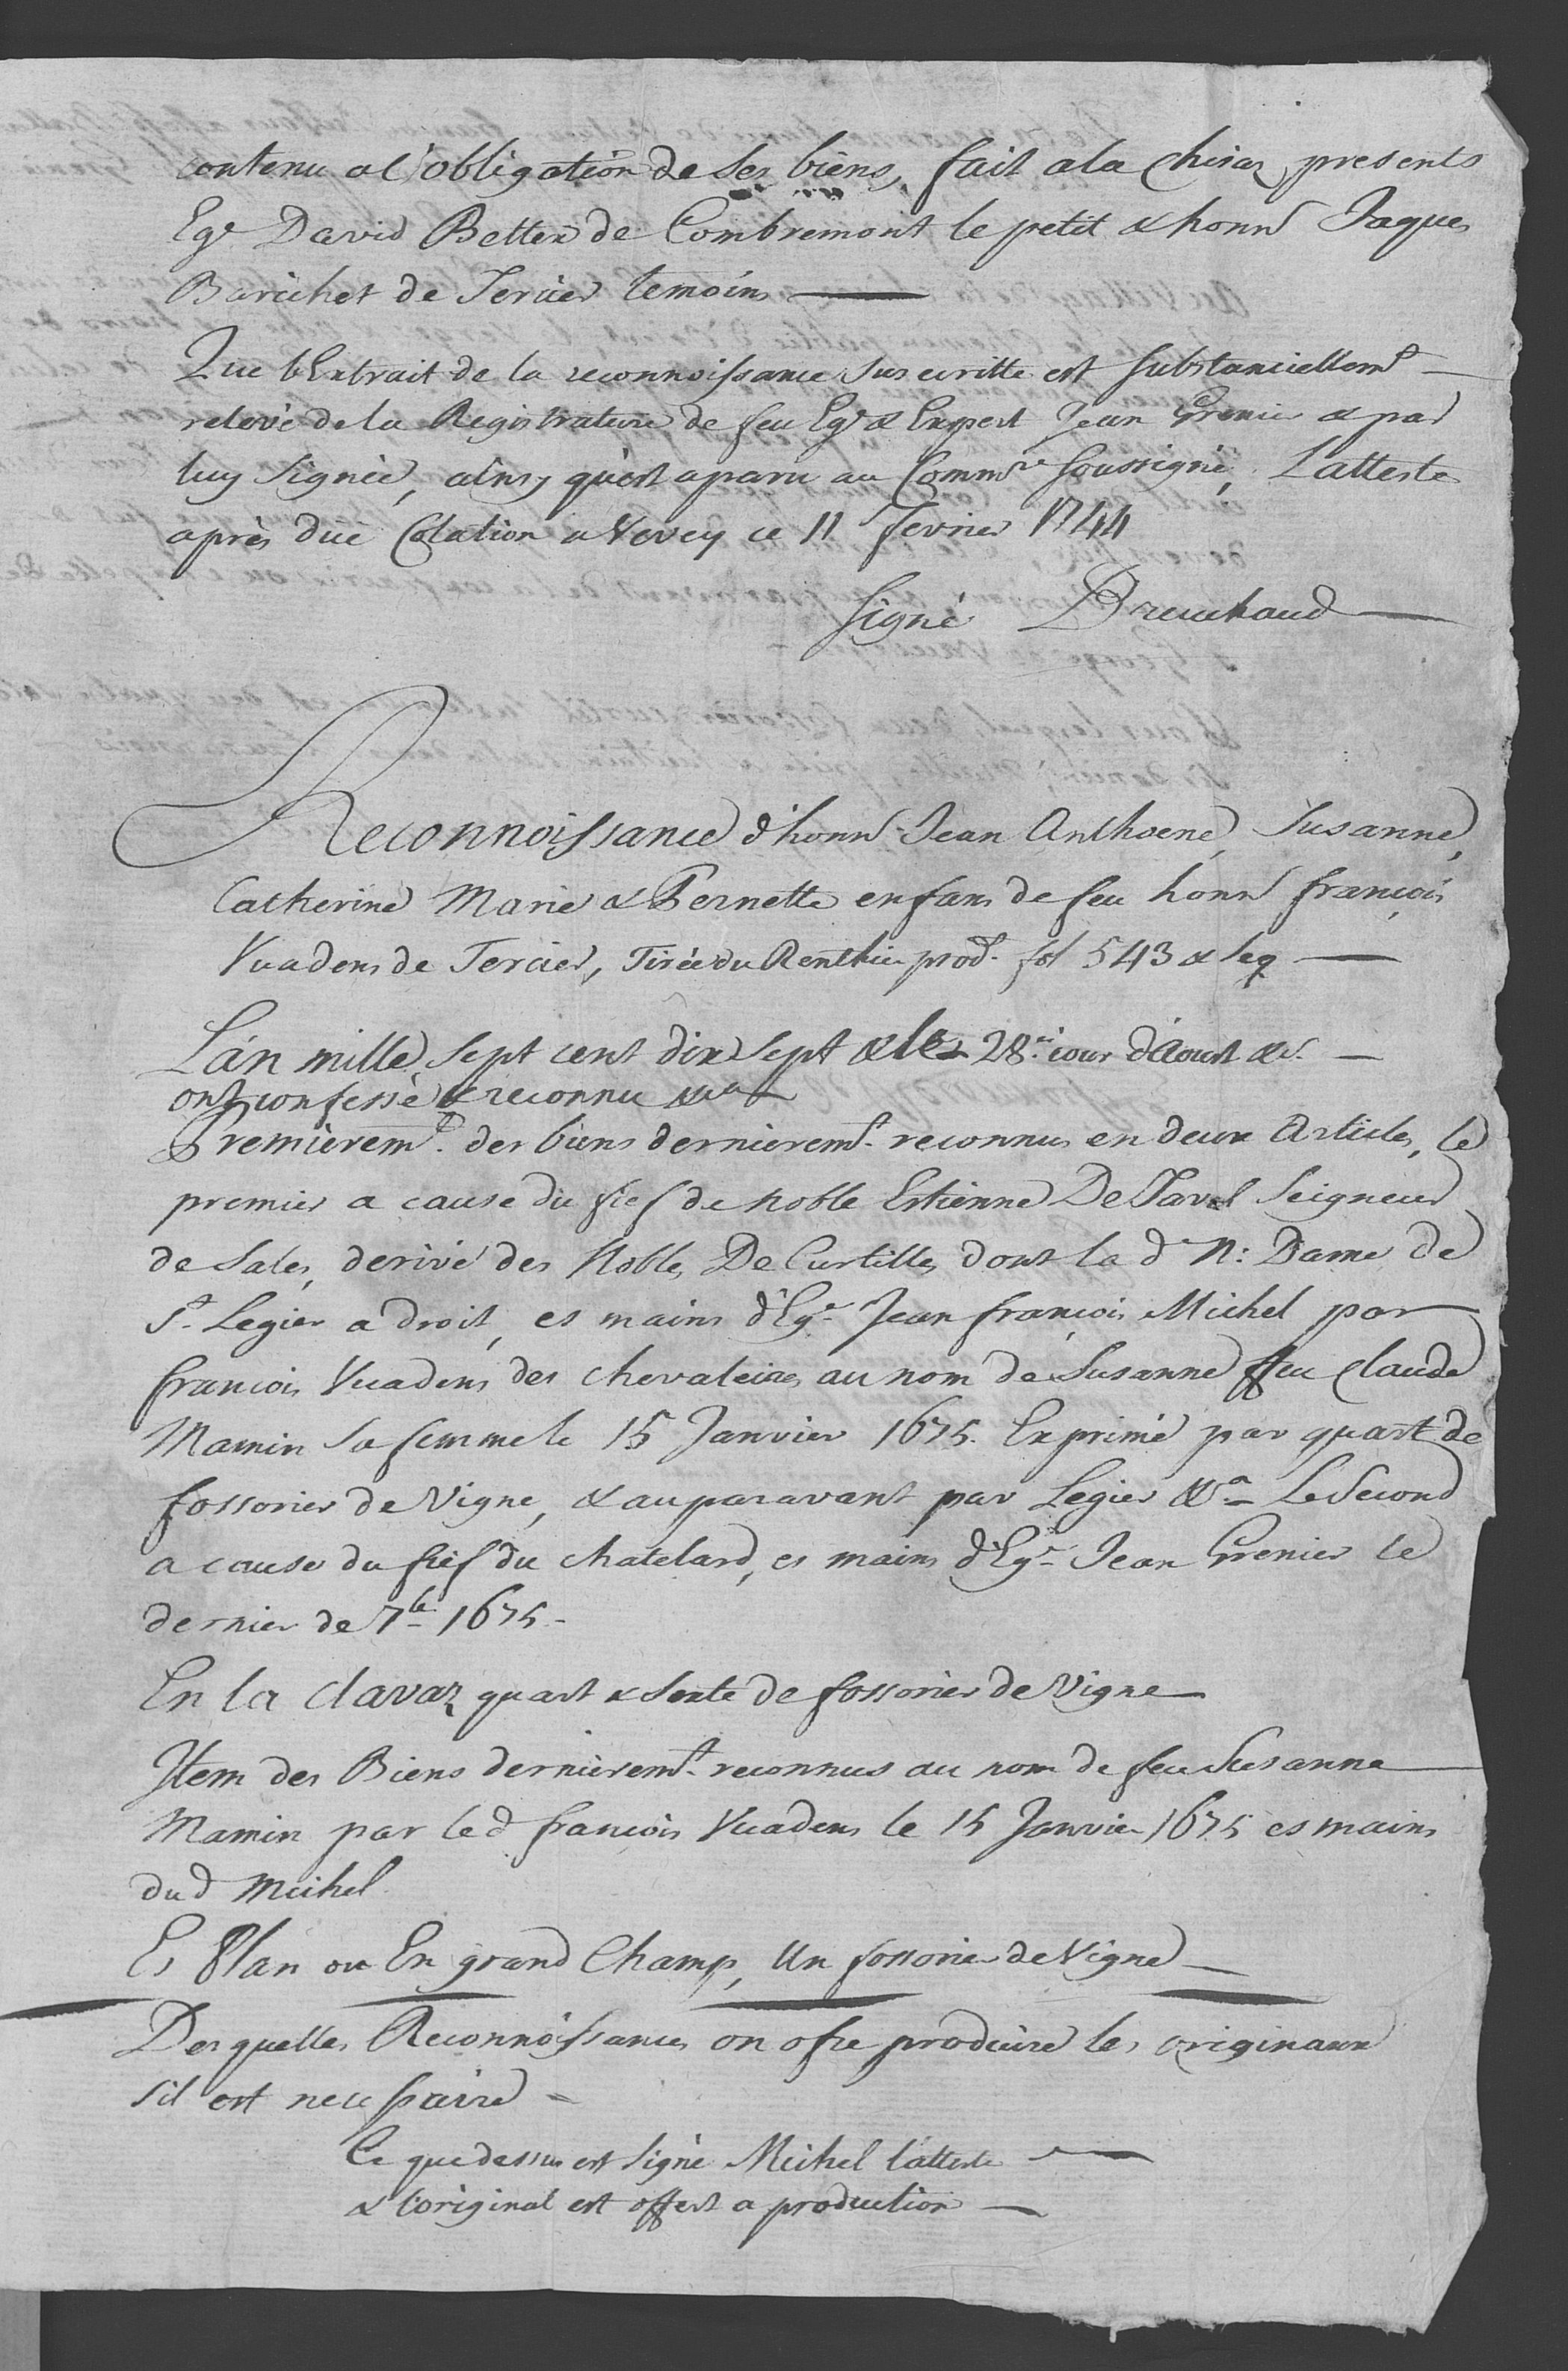 contenu a l'obligation de ses biens, fait a la Chiesaz presents
Eg.e David Bettex de Combremont le petit & honn.d Jaques
Barichet de Tercier temoins
Que l'Extrait de la reconnoissance sus ecritte est substanciellem.t
relevé de la Registrature de feu Eg.e & Expert Jean Grenier & par
luy Signée, ainsy qu'est aparu au Comm.re soussigné, L'atteste
après düe Colation a Vevey ce 11 fevrier 1744
Signé Dreuchaud
Reconnoissance d'honn.d Jean Anthoene, Susanne,
Catherine Marie & Pernette enfans de feu honn.d françois
Vuadens de Tercier, Tirée du Renthier prod.t fol 543 & seq
L'an mille sept cent dix sept & le 28.e jour d'Aoust &c.
ont confessé & reconnu &ca
Premierem.t des biens dernierem.t reconnus en deux Articles, le
premier a cause du fief de Noble Estienne De Tavel Seigneur
de Sales, derivé des Nobles De Curtilles dont la d.e N: Dame de
S.t Legier a droit, es mains d'Eg.e Jean françois Michel par
françois Vuadens des Chevaleires au nom de Susanne ffeu Claude
Mamin sa femme le 15 Janvier 1675. Exprimé par quart de
fossorier de Vigne, & auparavant par Legier &c.a Le Second
a cause du fief du Chatelard, es mains d'Eg.e Jean Grenier le
dernier de 7.bre 1675.
En la Clavaz quart & sexte de fossorier de Vigne
Item des Biens dernierem.t reconnus au nom de feu Susanne
Mamin par led. françois Vuadens le 15 Janvier 1675 es mains
dud Michel
Es Plan ou En grand Champ, Un fossorier de Vigne
Desquelles Reconnoissances on ofre produire les originaux
s'il est necessaire
Ce que dessus est signé Michel l'atteste
& l'original est offert a production